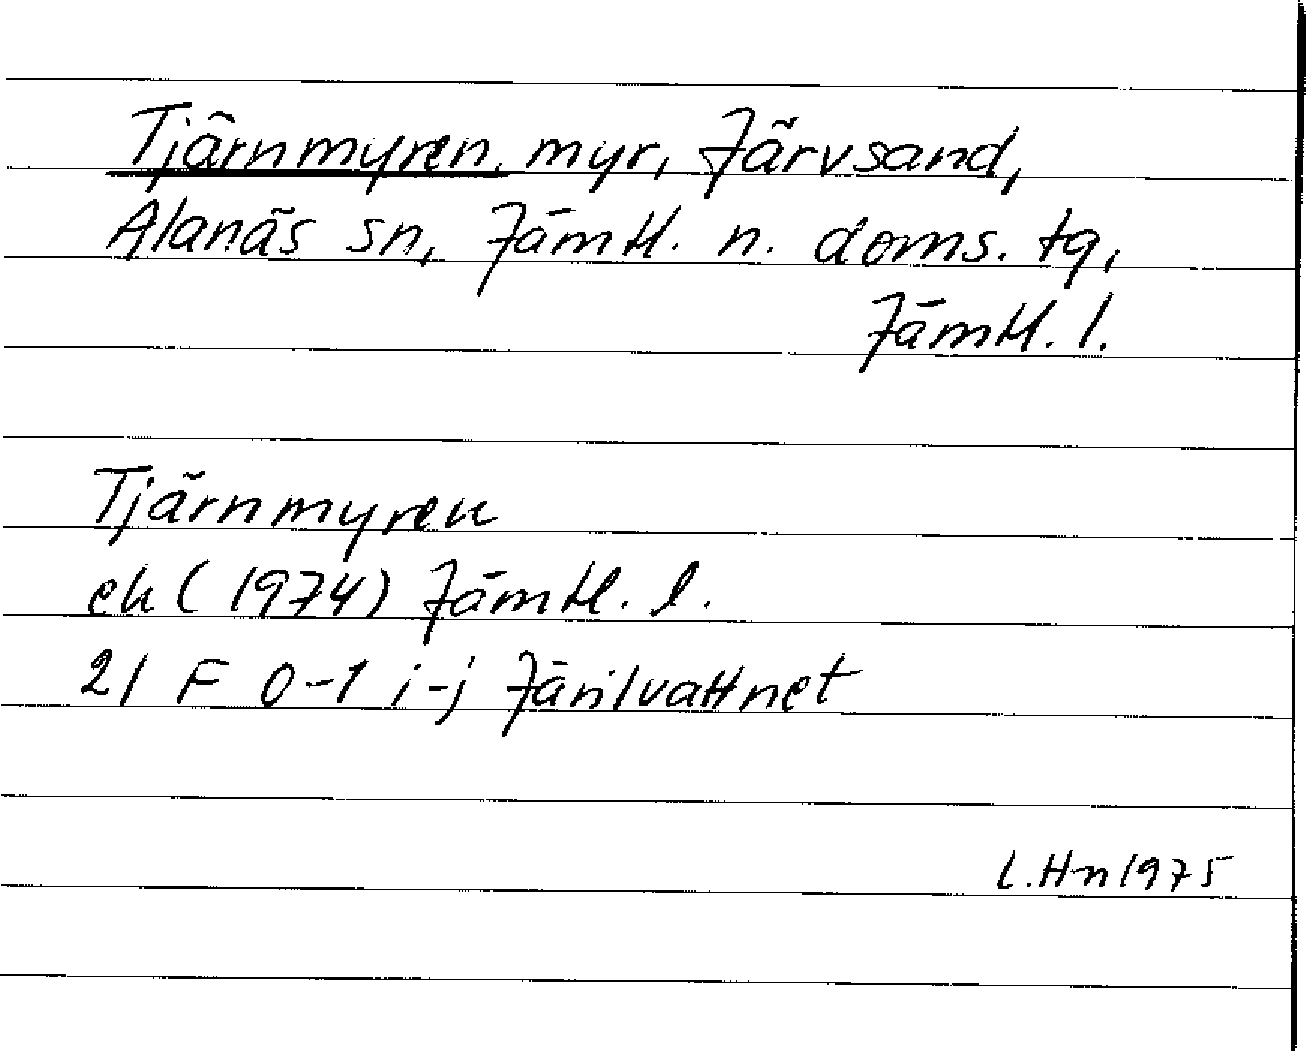 Tjärnmyren, myr, Järvsand,
Alanäs sn, Jämtl. n. doms. tg,
Jämtl. l.
Tjärnmyren
ek (1974) Jämtl. l.
21 F 0-1 i-j Järilvattnet
L.Hn 1975